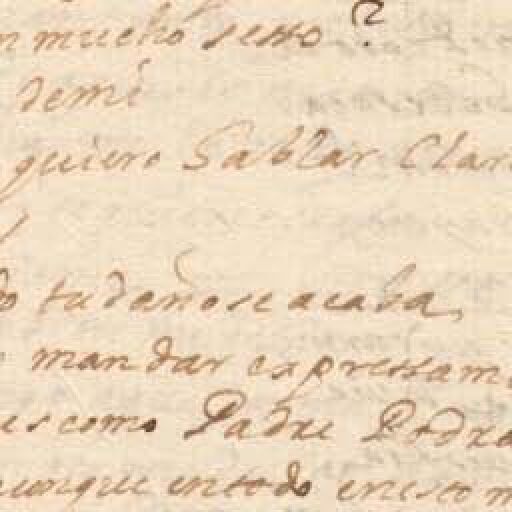 n mucho sesso ?
demi
quiero Gablar Clar
do tu daño se acaba,
mandar expressam
es como Padre Podra
aunque en todo en esto m